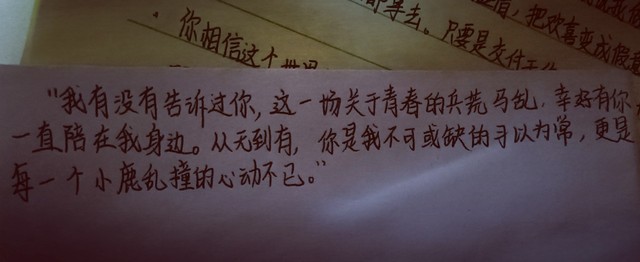 把欢喜变成假意
等去。只要是交付
你相信这个
“我有没有告诉过你,这一场关于青春的兵荒马乱,幸好有你,
一直陪在我身边。从无到有,你是我不可或缺的习以为常,更是
每一个小鹿乱撞的心动不已。”